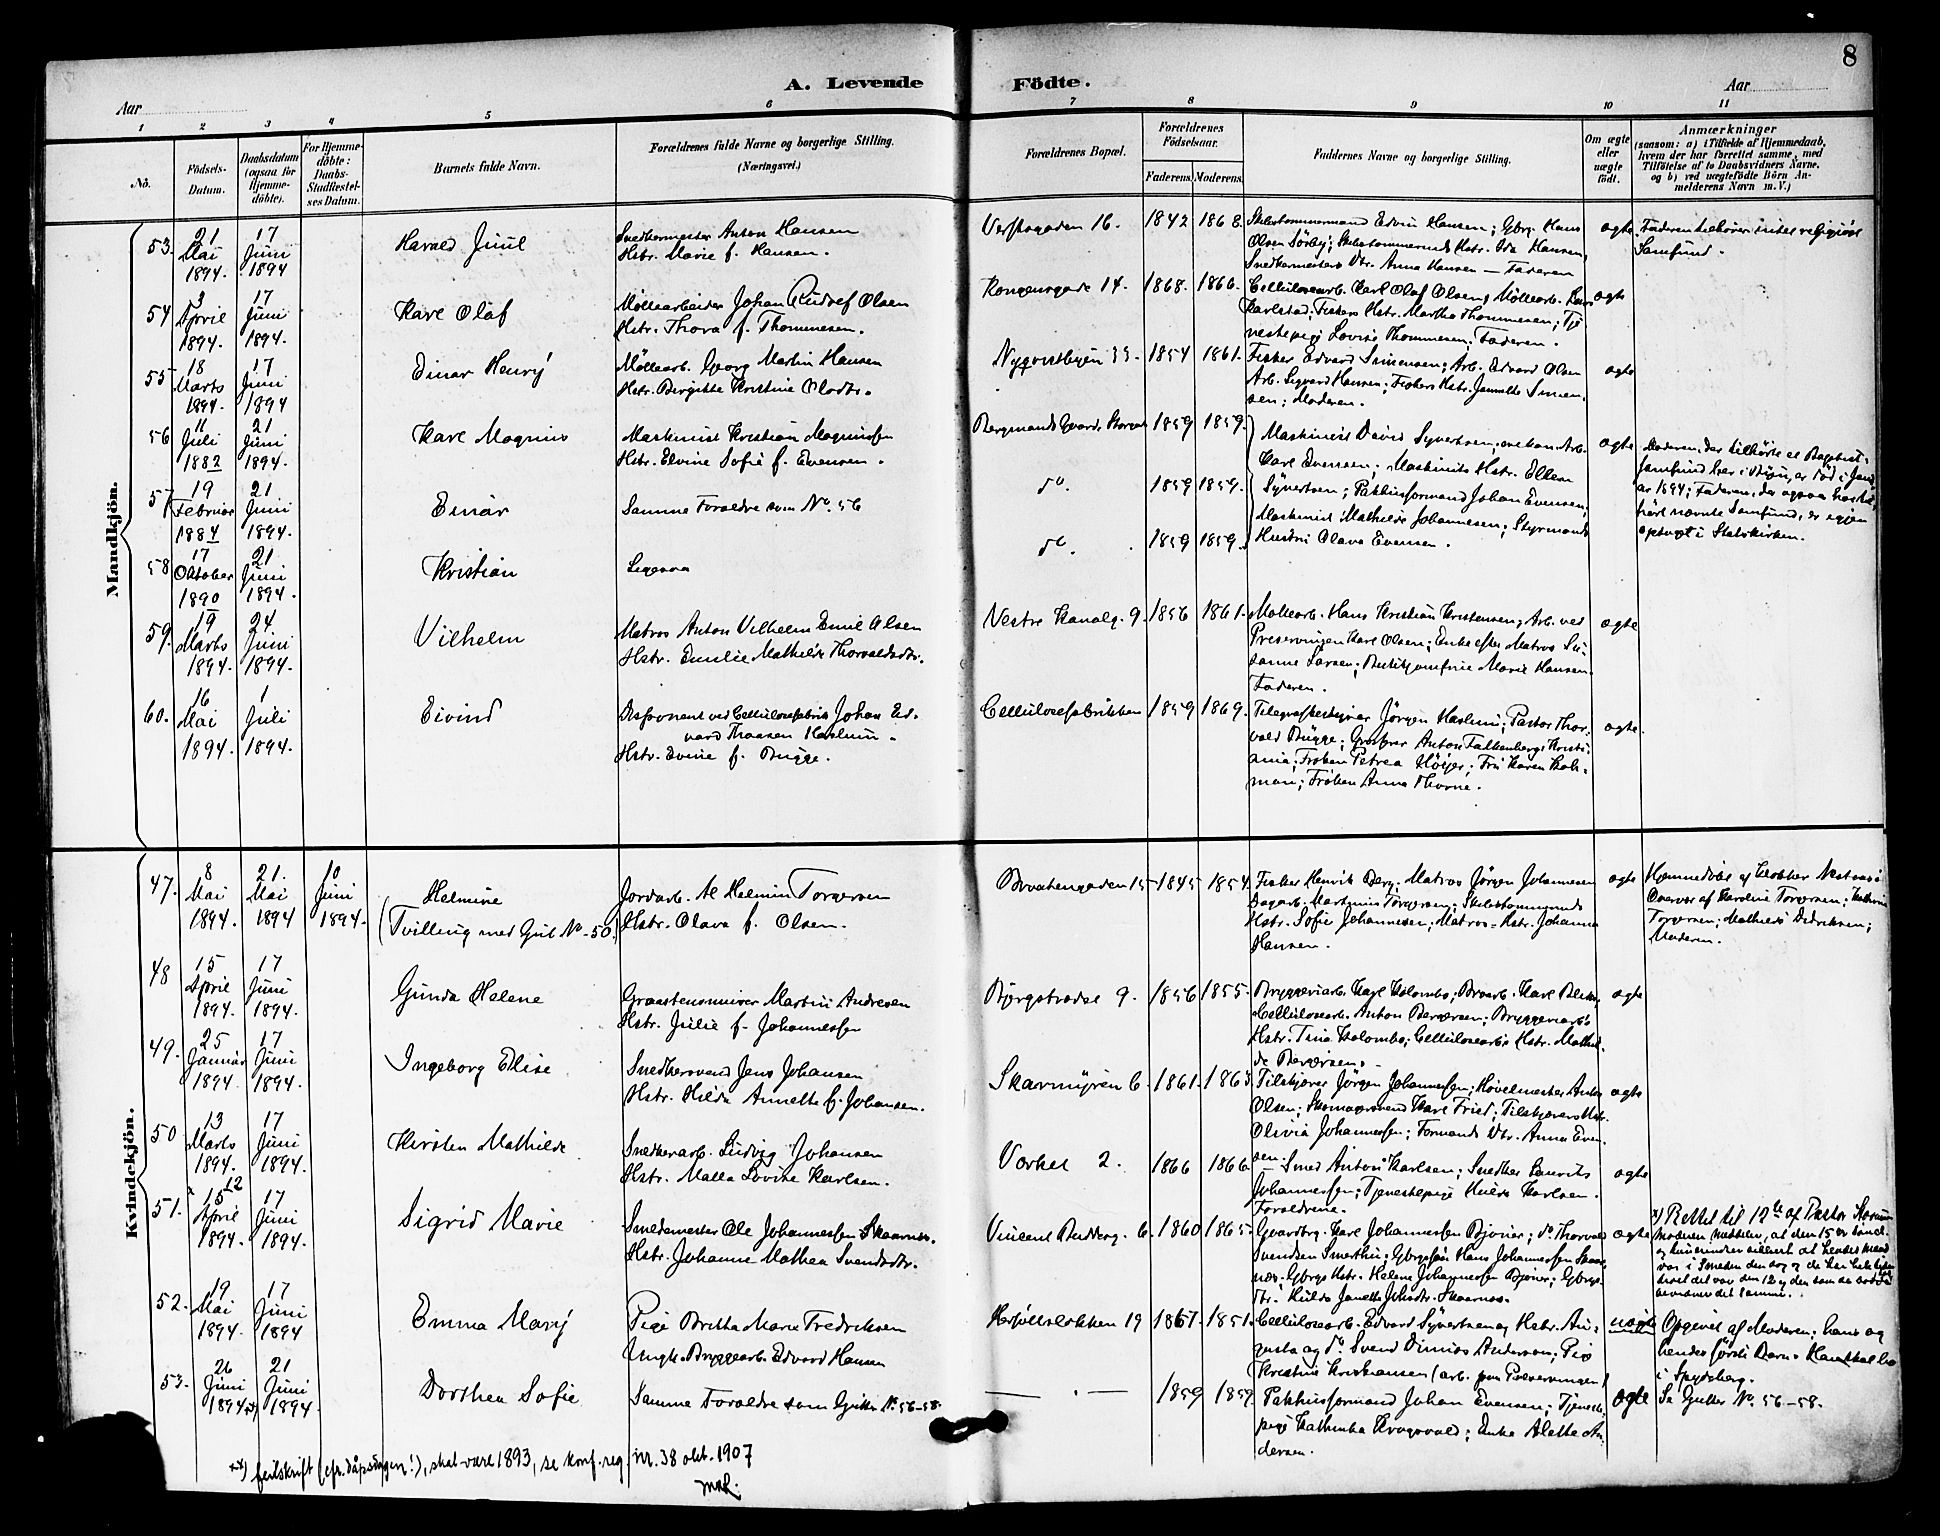 8
A. Levende Födte.
Aar
Aar
1 2 3 4 5 6 7 8 9 10 11
No.
Födsels-
Datum.
Daabsdatum
(ogsaa for
Hjemme-
döbte).
For Hjemme-
döbte:
Daabs-
Stadfæstel-
ses Datum.
Barnets fulde Navn.
Forældrenes fulde Navne og borgerlige Stilling.
(Næringsvei.)
Forældrenes Bopæl.
Forældrenes
Födselsaar.
Faderens. Moderens.
Faddernes Navne og borgerlige Stilling.
Om ægte
eller
uægte
födt.
Anmærkninger
(saasom: a) i Tilfælde af Hjemmedaab,
hvem der har forrettet samme, med
Tilföielse af to Daabsvidners Navne,
og b) ved uægtefödte Börn An-
melderens Navn m. V.)
Mandkjön.
53. 21 Mai 1894. 17 Juni 1894
Harald Juul
Snedkermester Anton Hansen
Hstr. Marie f. Hansen.
Verftsgaden 16. 1842 1868.
Skibstømmermand Edvin Hansen; Gbrg. Hans
Olsen Sörby; Skibstømmermds Hstr. Ida Hansen,
Snedkermesters Dtr. Anna Hansen – Faderen
ægte
Faderen tilhører intet religiöst
Samfund.
54 3 April 1894. 17 Juni 1894.
Karl Olaf
Möllearbeider Johan Rudolf Olsen
Hstr. Thora f. Thommesen.
Kongensgade 14. 1868. 1866.
Cellulosearb. Karl Olaf Olsen; Möllearb. Lars
Karlstad; Fiskers Hstr. Martha Thommesen; Tje
nestepige Lovise Thommesen; Faderen.
ægte
55 18 Marts 1894. 17 Juni 1894
Einar Henrÿ
Möllearb. Georg Martin Hansen
Hstr. Birgitte Kristine Olsdtr.
Nyqvistbyen 33. 1854 1861.
Fisker Edvard Simensen; Arb. Edvard Olsen
Arb. Sigvard Hansen; Fiskers Hstr. Jannette Simen
sen; Moderen.
ægte
56 11 Juli 1882 21 Juni 1894.
Karl Magnus
Maskinist Kristian Magnussen
Hstr. Elvine Sofie f. Evensen.
Bergmands Gaard, 1859 1859.
Maskinist David Syvertsen; Arb.
Karl Evensen; Maskinists Hstr. Ellen
Syvertsen; Pakhusformand Johan Evensen;
Maskinist Mathilde Johannesen; Styrmands
Hustru Olava Evensen.
ægte
Moderen, der tilhørte et Baptist-
samfund her i Byen, er død i Janu
ar 1894; Faderen, der ogsaa har til
hört nævnte Samfund, er igjen
optaget i Statskirken.
57 19 Februar 1884 21 Juni 1894.
Einar
Samme Forældre som No. 56
do. 1859 1859.
58 17 Oktober 1890 21 Juni 1894.
Kristian
Ligesaa
do. 1859 1859.
59. 19 Marts 1894. 24 Juni 1894.
Vilhelm
Matros Anton Vilhelm Emil Olsen
Hstr. Emilie Mathilde Thorvaldsdtr.
Vestre Kanalg. 9. 1856 1861.
Möllearb. Hans Kristian Kristensen; Arb. ved
Preservingen Karl Olsen; Enke efter Matros Su
sanne Larsen; Butikjomfrue Marie Hansen
Faderen.
ægte
60. 16 Mai 1894. 1 Juli 1894.
Eivind
Disponent ved Cellulosefabrik Johan Ed-
vard Thaasen Haslum.
Hstr. Evine f. Bugge.
Cellulosefabrikken 1859 1869.
Telegrafbestyrer Jörgen Haslum; Pastor Thor-
vald Bugge; Grosfrer Anton Falkenberg, Kristi-
ania; Fröken Petrea Höyer; Fru Karen Kol-
man; Fröken Anna Thorne.
ægte.
Kvindekjön.
47. 8 Mai 1894. 21. Mai 1894 10 Juni 1894.
Helmine
(Tvilling med Gut No. 50.)
Jordarb. Helmin Torgersen
Hstr. Olava f. Olsen.
Braatengaden 15 1845 1854.
Fisker Henrik Berg; Matros Jörgen Johannesen
Dagarb. Martinius Torgersen; Skibstømmermds
Hstr. Sofie Johannesen; Matros-Hstr. Johanne
Hansen.
ægte
Hjemmedöbt af Klokker
Overvær af Karoline Torgersen; Kathrine
Torgersen; Mathilde Didriksen;
Moderen.
48 15 April 1894. 17 Juni 1894.
Gunda Helene
Graastensmurer Martin Andresen
Hstr. Julie f. Johannesen
Björgstredet 9. 1856 1855.
Bryggeriarb. Karl Kolombo; Karl
Cellulosearb. Anton Borgersen; Bryggeriarb's
Hstr. Tina Kolombo; Cellulosearb's Hstr. Mathil-
de Borgersen.
ægte
49. 25 Januar 1894. 17 Juni 1894.
Ingeborg Elise
Snedkersvend Jens Johansen
Hstr. Hilda Annette f. Johansen.
Skarmyren 6. 1861. 1863.
Tilskjærer Jörgen Johannesen; Høvelmester Anton
Olsen; Skomagersvend Karl Fried; Tilskjærers Hstr.
Olivia Johannesen; Formands Dtr. Anna Even
sen.
ægte
50 13 Marts 1894. 17 Juni 1894.
Kirsten Mathilde
Snedkerarb. Ludvig Johansen
Hstr. Malla Lovise Karlsen.
Værket 2. 1866 1866
Smed Anton Karlsen; Snedker Laurits
Johannesen; Tjenestepige Hulda Karlsen.
Forældrene.
ægte
51. x 15 12 April 1894. 17 Juni 1894.
Sigrid Marie
Smedemester Ole Johannesen Skaarnæs.
Hstr. Johanne Mathea Svendsdtr.
Vincent Budbergs g. 6. 1860 1865.
Gaardbrg. Karl Johannesen Björnor; do. Thorvald
Svendsen Smerthu; Gbrgssön Hans Johannesen Skaar
næs; Gbrgs Hstr. Helene Johannesen Björnor; Gbrgs
dtr. Hulda Janette Johsdtr. Skaarnæs.
ægte
x) Rettet til 12te af Pastor
Moderen meddeler, at den 15 er
52. 19 Mai 1894. 17 Juni 1894
Emma Marÿ
Pige Britta Marie Fredriksen
Ungk. Bryggearb. Edvard Hansen
Herföllslökken 19 1867. 1851.
Cellulosearb. Edvard Syvertsen og Hstr. Au-
gusta og do. Svend Dinius Andersen; Pige
Kristine Kristiansen (arb. paa Preservingen)
uægte
Opgivet af Moderen; hans og
hendes første Barn. Han skal bo
i Spydeberg.
53. 26 Juni 1894 xx) 21 Juni 1894.
Dorthea Sofie
Samme Forældre som Gutter No. 56–58.
— . — 1859 1859.
Pakhusformand Johan Evensen; Tjeneste
pige Kathinka Kragsvold; Enke Alette An
dersen.
ægte
Se Gutter No. 56–58.
xx) feilskrift (cfr. dåpsdagen!), skal være 1893, se konf. reg. nr. 38 okt. 1907